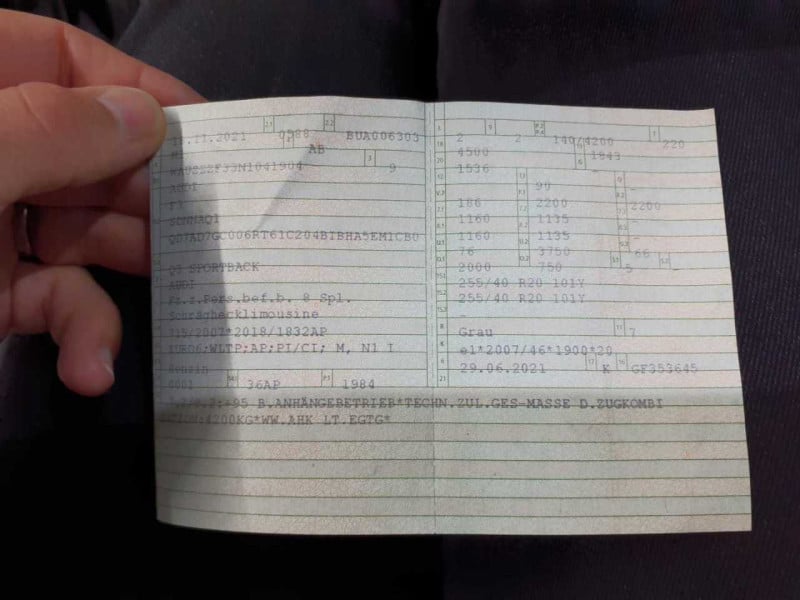 13.11.2021 0588 BUA006303
M1 AB
9
AUDI
F3
SONNAQ1
Q3 SPORTBACK
AUDI
Fz.z.Pers.bef.b. 8 Spl.
Schräghecklimousine
715/2007*2018/1832AP
EURO6;WLTP;AP;PI/CI; M, N1 I
Benzin
0001 36AP 1984
2 2 140/4200 220
4500 1843
1536 -
90 -
186 2200 2200
1160 1135 -
1160 1135 -
76 3750 66
2000 750 5 -
255/40 R20 101Y
255/40 R20 101Y
-
Grau 7
e1*2007/46*1900*20
29.06.2021 K GF353645
B.ANHÄNGEBETRIEB*TECHN.ZUL.GES-MASSE D.ZUGKOMBI
4200KG*WW.AHK LT.EGTG*